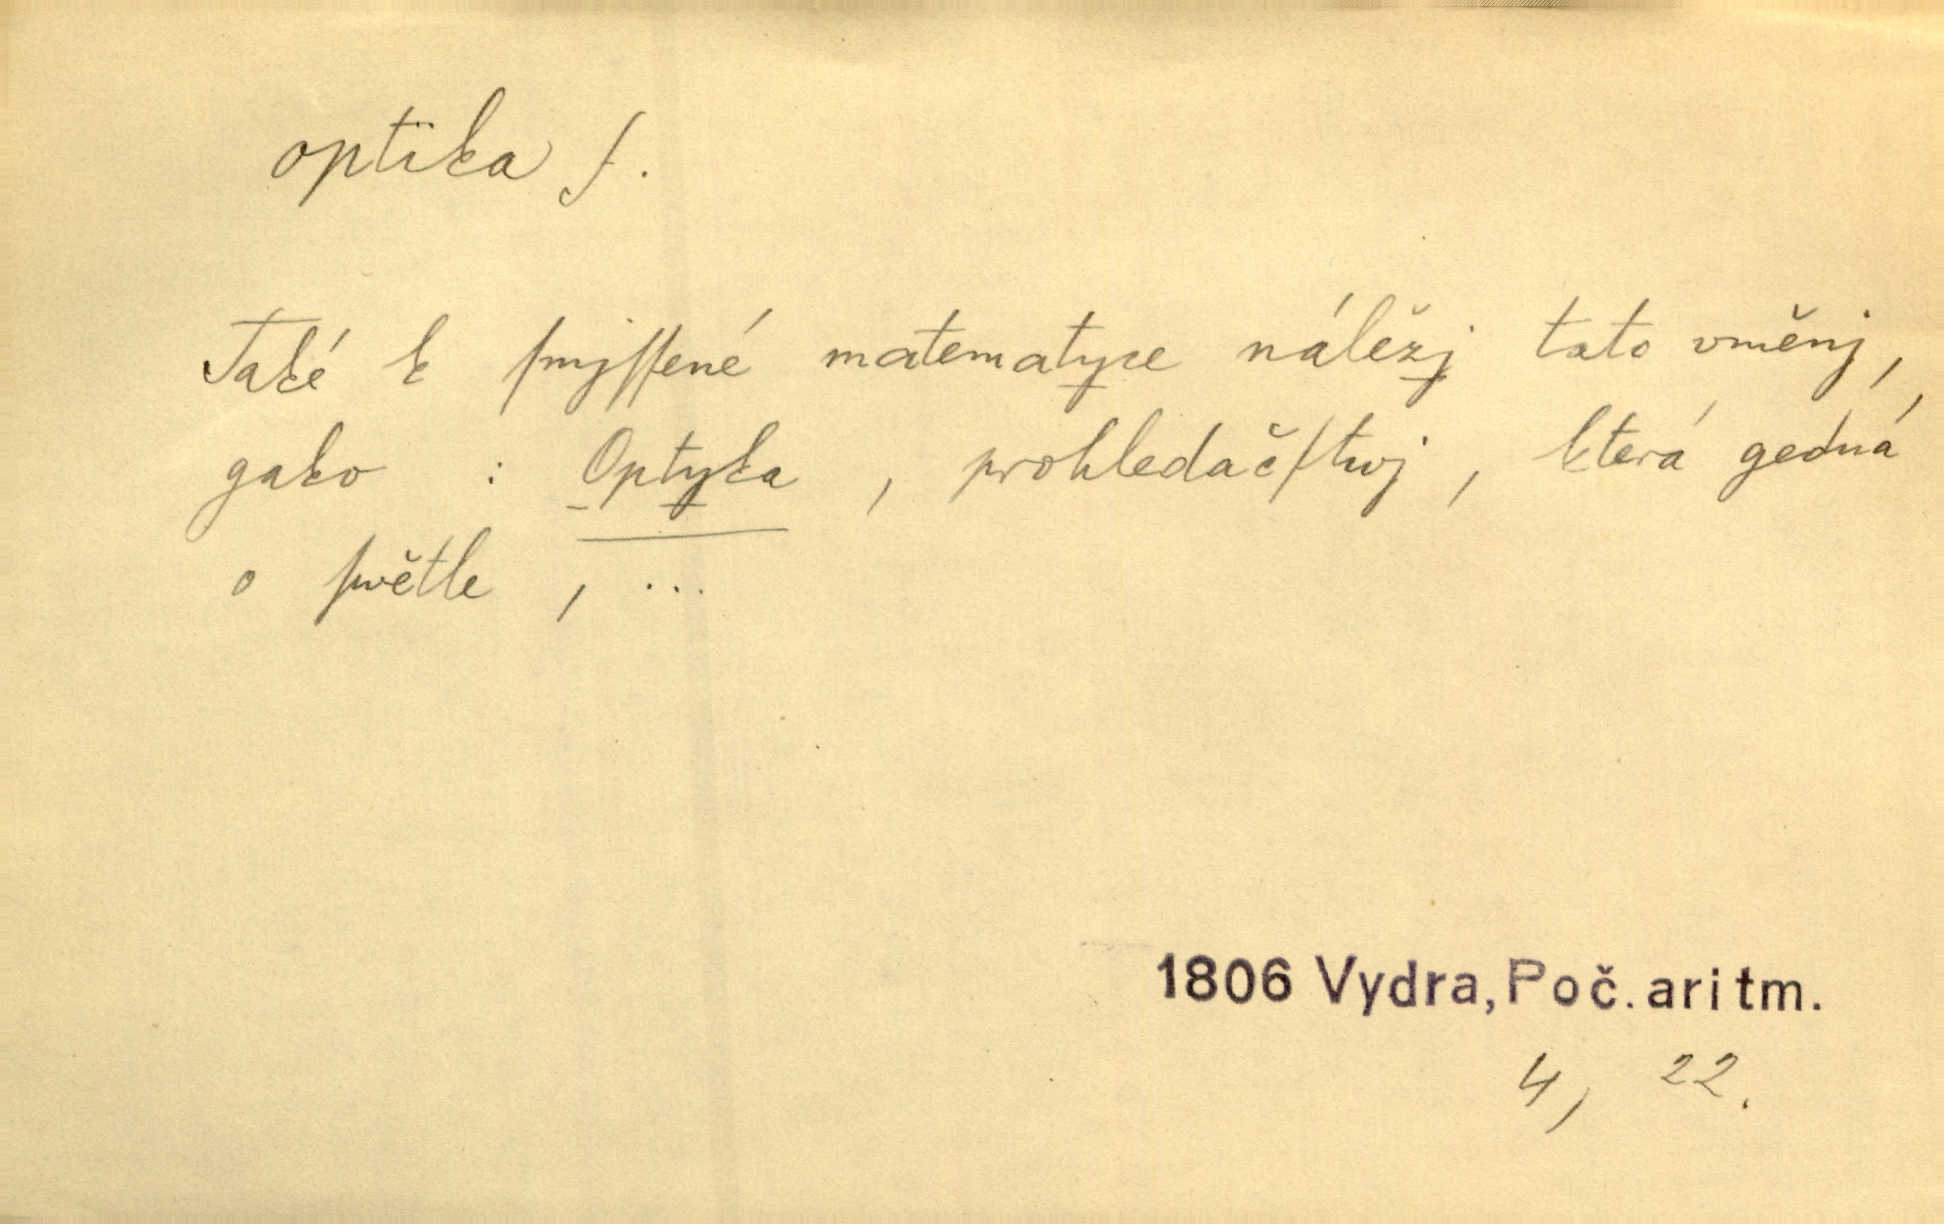 optika f.
Také k smjssené matematyce náležj tato vměnj,
gako : Optyka, prohledačstwj, která gedná
o swětle, ...
1806 Vydra, Poč. aritm.
4, 22.